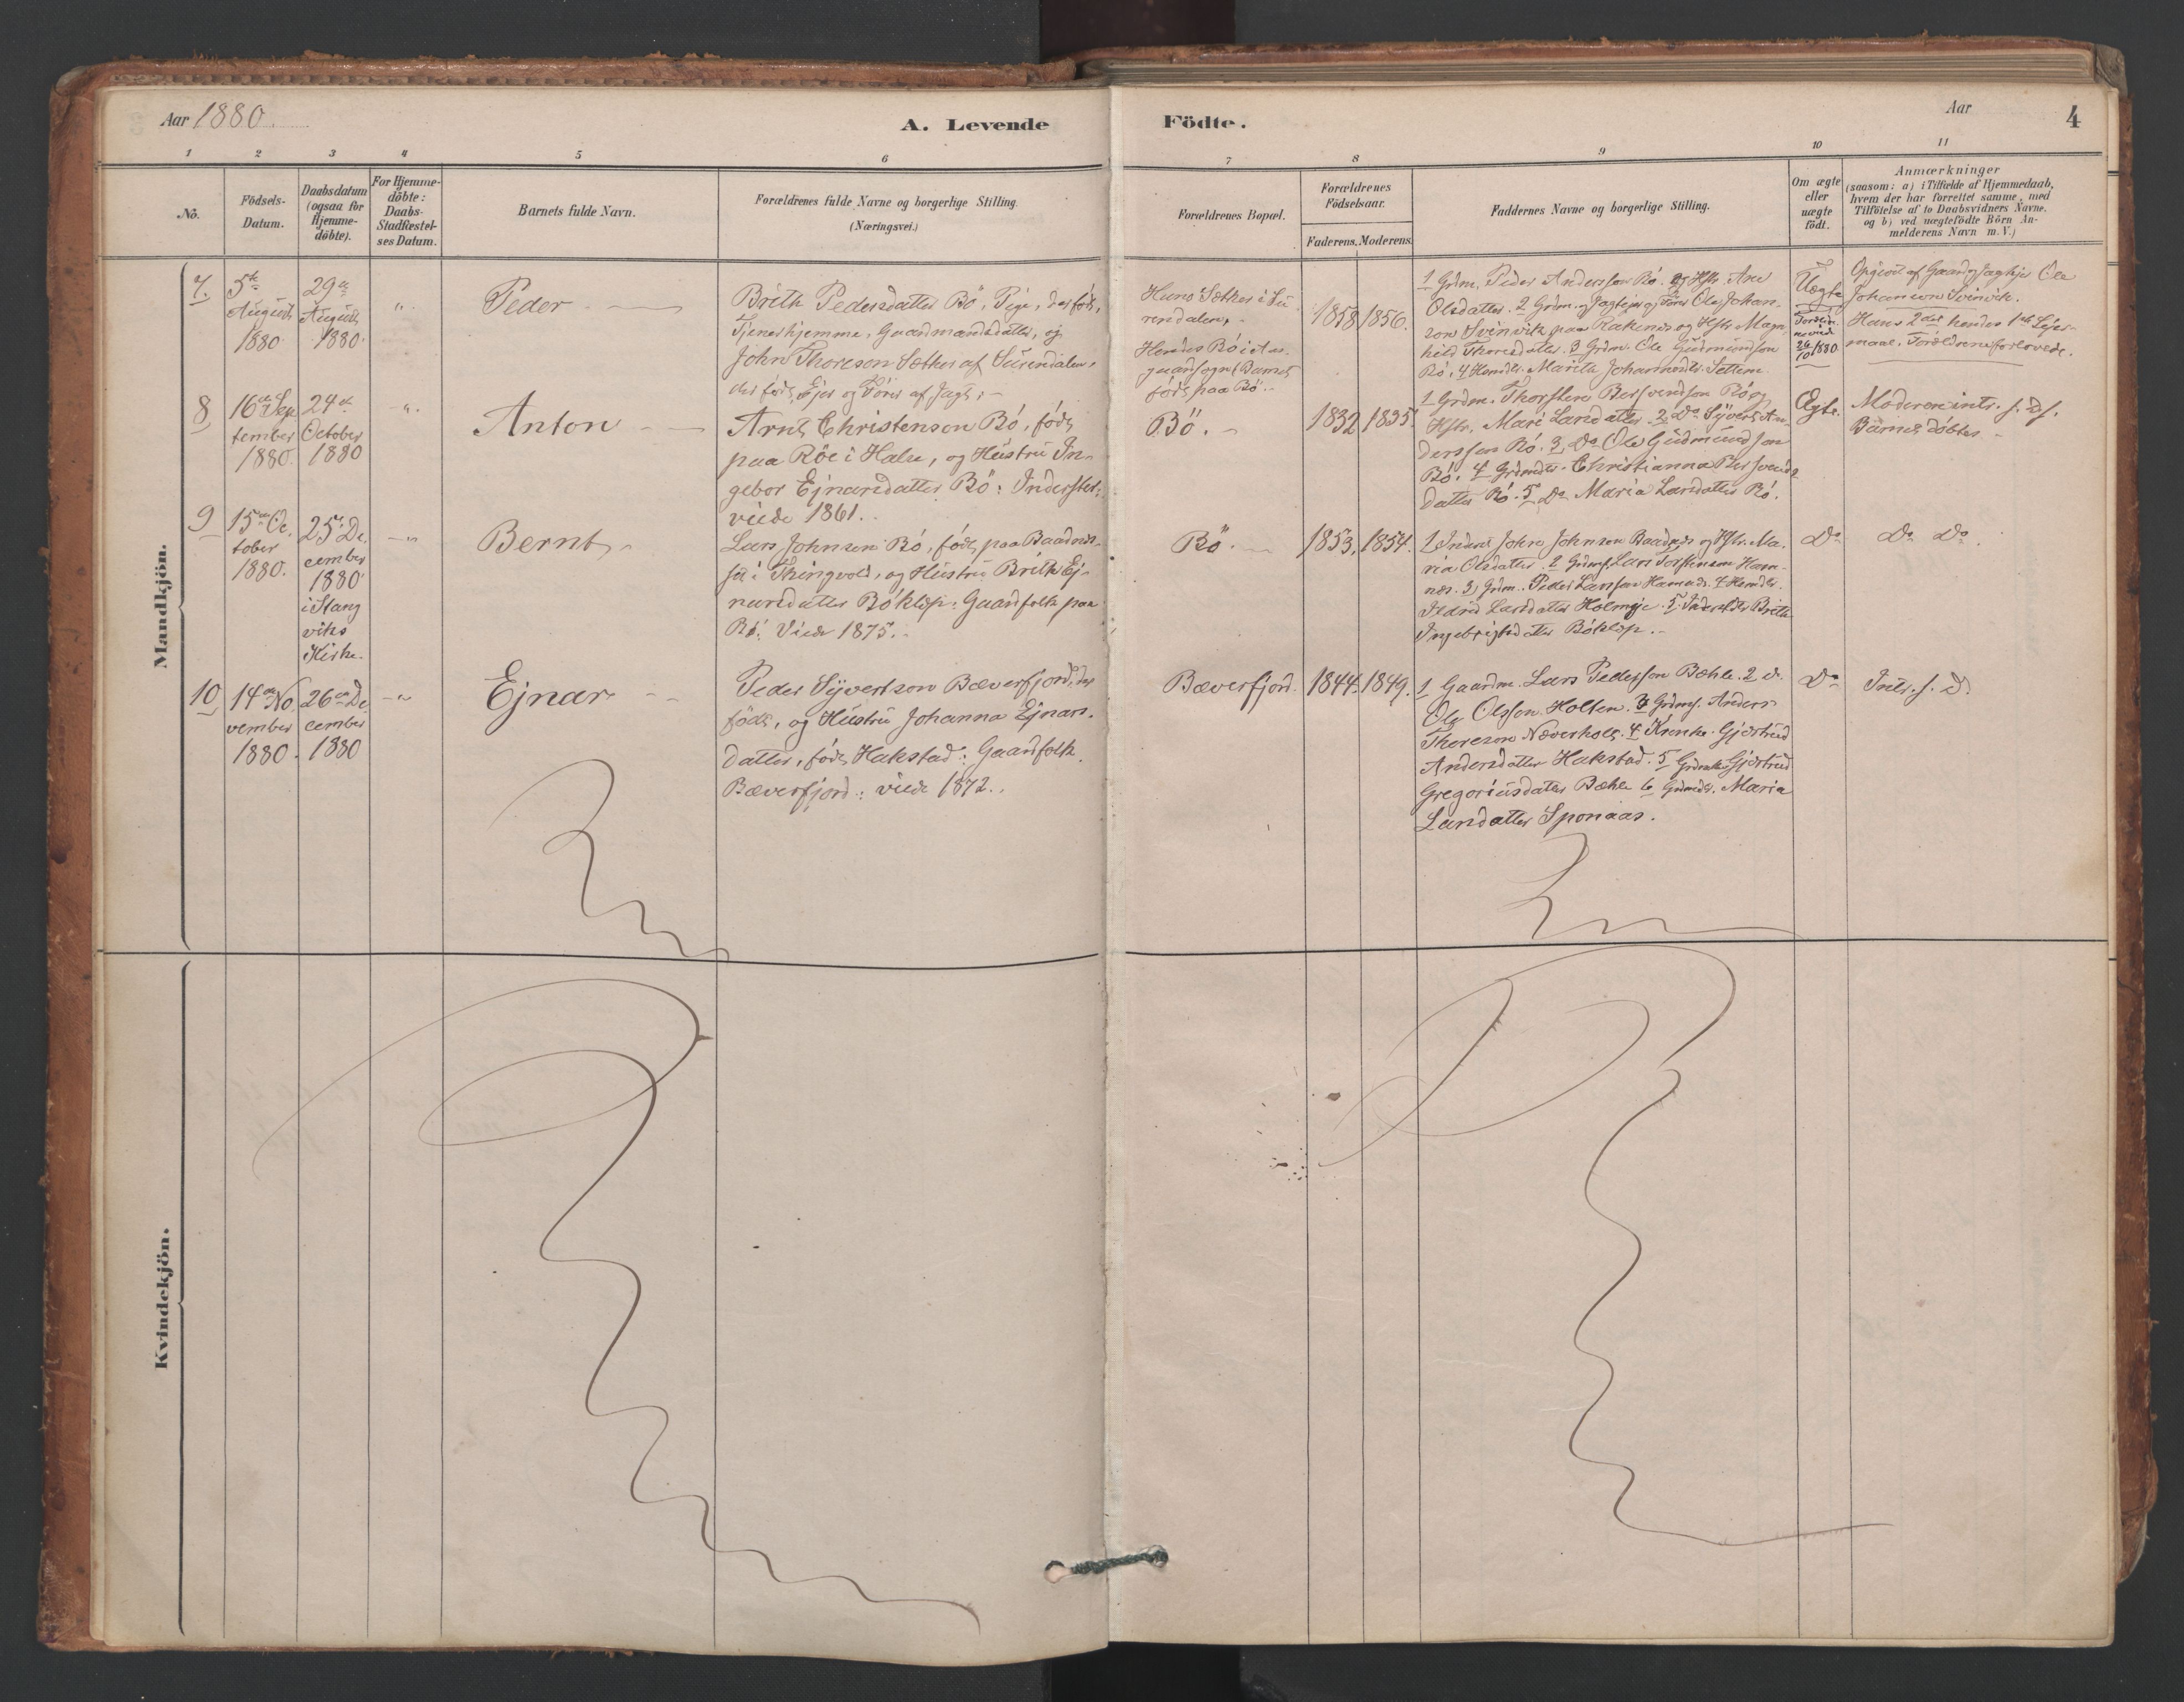 Aar 1880.
A. Levende
Födte.
Aar
4
1 2 3 4 5 6 7 8 9 10 11
No.
Födsels-
Datum.
Daabsdatum
(ogsaa for
Hjemme-
döbte).
For Hjemme-
döbte:
Daabs-
Stadfæstel-
ses Datum.
Barnets fulde Navn.
Forældrenes fulde Navne og borgerlige Stilling.
(Næringsvei.)
Forældrenes Bopæl.
Forældrenes
Födselsaar.
Faderens. Moderens.
Faddernes Navne og borgerlige Stilling.
Om ægte
eller
uægte
födt.
Anmærkninger
(saasom: a) i Tilfælde af Hjemmedaab,
hvem der har forrettet samme, med
Tilföielse af to Daabsvidners Navne.
og b) ved uægtefödte Börn An-
melderens Navn m. V.)
Mandkjön.
7.
5te
August
1880
29de
August
1880.
"
Peder
Brith Pedersdatter Bö, Pige, der født,
Tjener hjemme, Gaardmandsdatter, og
John Thoreson Sæther af Surendalen,
der født, Ejer og Fører af Jagt.
Hans Sæther i Su-
rendalen,
Hendes Bö i As-
guardsogn (Barnet
født paa Bö.
1858 1856.
1 Grdm. Peder Andersson Bö. og Hstr. Ane
Olsdatter. 2 Grdm. og Jagtejer og Fører Ole Johan-
son Svinvik paa Rakenes og Hstr. Magn-
hild Thoresdatter. 3 Grdm. Ole Gudmundson
Bö. 4 Marith Johannesdtr. Settem.
Uægte
26/10 1880
Opgivet af Gaard og Jagtejer Ole
Johanson Svinvik.
Hans 2det hendes 1ste Lejer-
maal. Forældrene forlovede.
8
16de Sep
tember
1880.
24de
October
1880
"
Anton
Arnt Christenson Bö, født
paa Röe i Halse, og Hustru In-
gebor Ejnarsdatter Bö: Inderster:
viede 1861.
Bö.
1832 1835.
1 Grdm. Thorsten Bersvendson Bö og
Hstr. Mari Larsdatter. 2 Do Syvert An-
dersson Bö. 3 Do Ole Gudmundson
Bö. 4 Christianna Bersvends
datter Bö. 5 Do Maria Larsdatter Bö.
Ægte.
Moderen intr. f. D. f.
Barnet döbtes
9
15de Oc.
tober
1880.
25de De.
cember
1880
i Stang
viks
Kirke.
"
Bernt
Lars Johnson Bö, født paa Baadnes-
set i Thingvold, og Hustru Brith Ej-
narsdatter Böklöp: Gaardfolk paa
Bö: Viede 1875.
Bö.
1853. 1854.
1 Inders John Johnson Baadnes og Hstr. Ma-
ria Olsdatter. 2 Grdms. Lars Torstenson Ham-
nes. 3 Grdm. Peder Larsson Hamnes. 4
Ildrid Larsdatter Holmeje. 5 Brith
Ingebrigtsdatter Böklöp.
Do
Do Do.
10
14de No
vember
1880.
26de De
cember
1880
"
Ejnar
Peder Syvertson Bæverfjord, der
født, og Hustru Johanna Ejnars-
datter, født Hakstad: Gaardfolk
Bæverfjord: viede 1872.
Bæverfjord.
1844. 1849.
1 Gaardm. Lars Pedersson Bæhle. 2 do.
Ole Olsson Holten. 3 Grdms. Anders
Thoreson Næverholt. 4 Gjertrud
Andersdatter Hakstad. 5 Gjertrud
Gregoriusdatter Bæhle 6 Grdmdtr. Maria
Larsdatter Sponaas.
Do
Intr. f. D.
Kvindekjön.